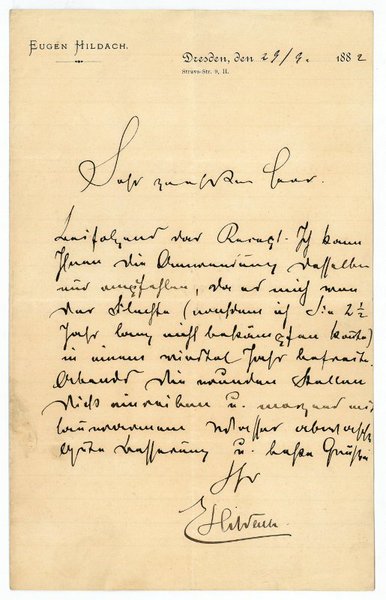 EUGEN HILDACH.
Dresden, den 29/9. 1882
Struve-Str. 9, II.
Sehr geehrter Herr.
Beifolgend das Recept. Ich kann
Ihnen die Anwendung desselben
nur empfehlen, da es mich von
der Flechte (nachdem ich sie 2½
Jahr lang nicht bekämpfen konnte)
in einem viertel Jahr befreite.
Abends die wunden Stellen
dick einreiben u. morgens mit
lauwarmem Wasser abwaschen
Gute Besserung u. beste Grüße
Ihr
EHildach.